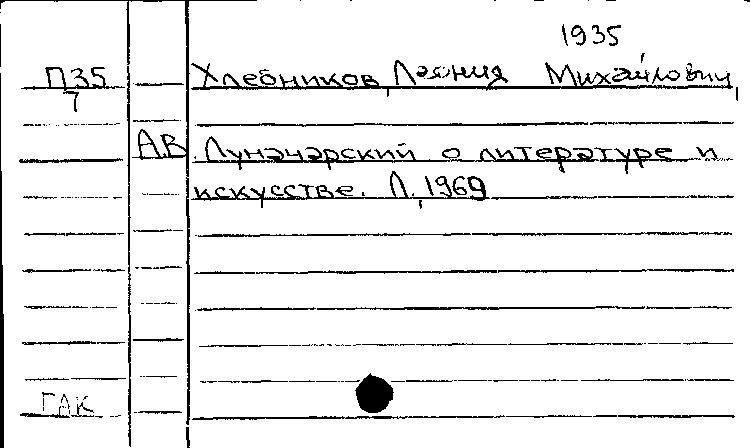 1935
П35 Хлебников, Леонид Михайлович,
7
А.В. Луначарский о литературе и
искусстве. Л., 1969
ГАК